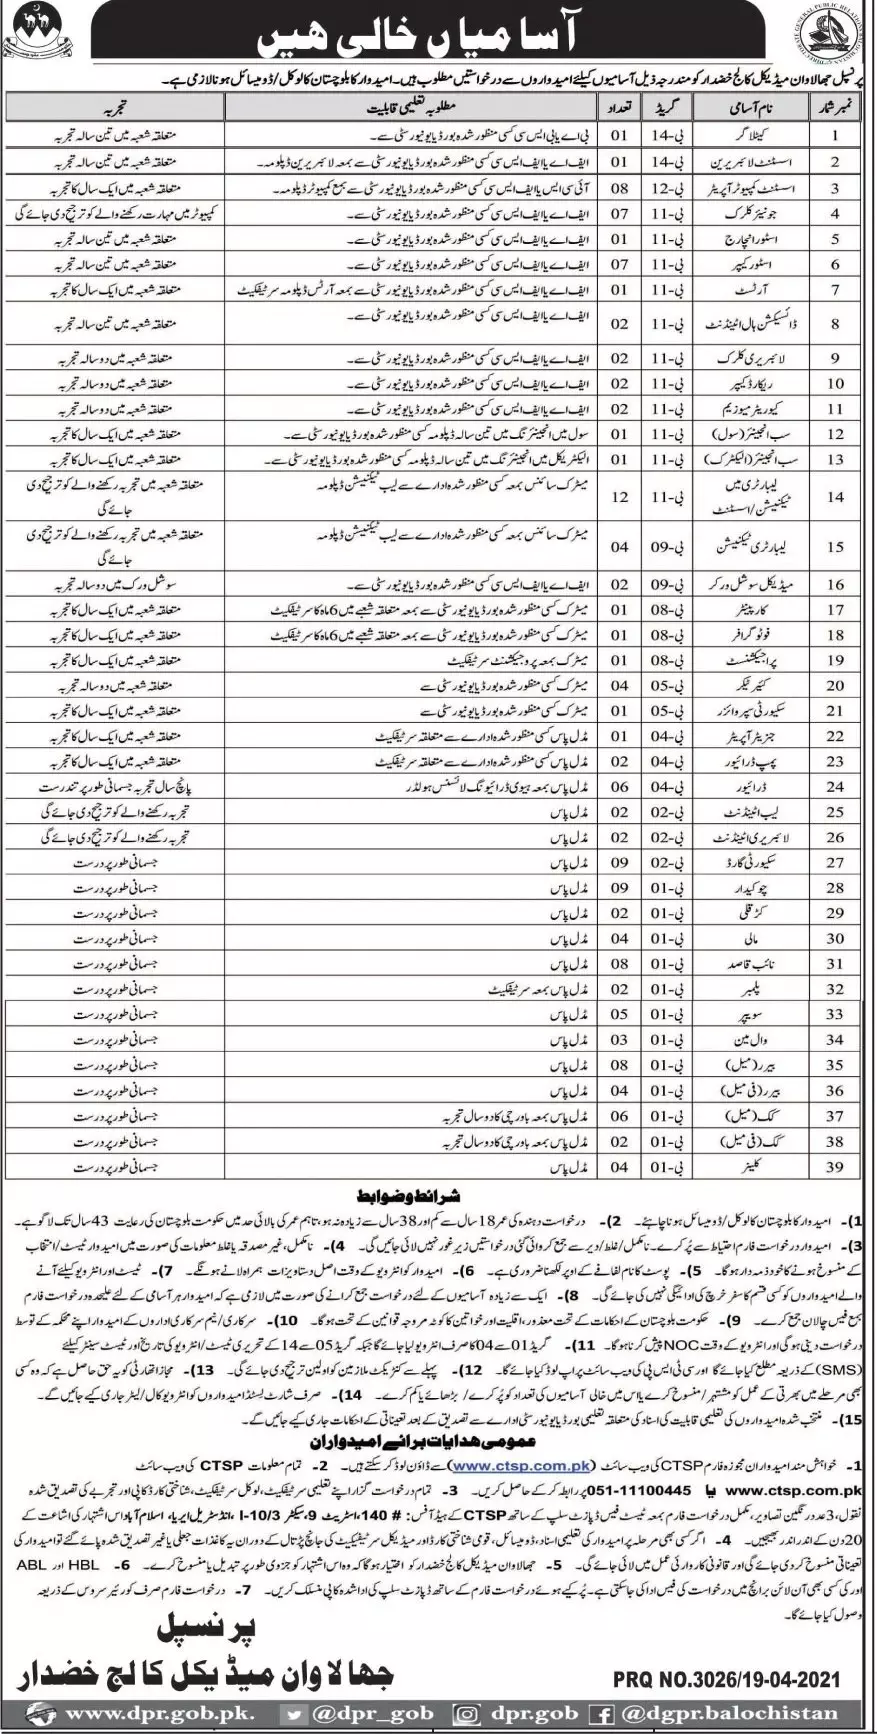 آسامیاں خالی ھیں
پرنسپل جھالاوان میڈیکل کالج خضدار کو مندرجہ ذیل آسامیوں کیلئے امیدواروں سے درخواستیں مطلوب ہیں۔ امیدوار کا بلوچستان کا لوکل/ڈومیسائل ہونا لازمی ہے۔
نمبر شمار نام آسامی گریڈ تعداد مطلوبہ تعلیمی قابلیت تجربہ
1 کیٹلاگر بی-14 01 بی اے یا بی ایس سی کسی منظور شدہ بورڈ یا یونیورسٹی سے۔ متعلقہ شعبہ میں تین سالہ تجربہ
2 اسسٹنٹ لائبریرین بی-14 01 ایف اے یا ایف ایس سی کسی منظور شدہ بورڈ یا یونیورسٹی سے بمعہ لائبریرین ڈپلومہ۔ متعلقہ شعبہ میں تین سالہ تجربہ
3 اسسٹنٹ کمپیوٹر آپریٹر بی-12 08 آئی سی ایس یا ایف ایس سی کسی منظور شدہ بورڈ یا یونیورسٹی سے بمع کمپیوٹر ڈپلومہ۔ متعلقہ شعبہ میں ایک سال کا تجربہ
4 جونیئر کلرک بی-11 07 ایف اے یا ایف ایس سی کسی منظور شدہ بورڈ یا یونیورسٹی سے۔ کمپیوٹر میں مہارت رکھنے والے کو ترجیح دی جائے گی
5 اسٹور انچارج بی-11 01 ایف اے یا ایف ایس سی کسی منظور شدہ بورڈ یا یونیورسٹی سے۔ متعلقہ شعبہ میں تین سالہ تجربہ
6 اسٹور کیپر بی-11 07 ایف اے یا ایف ایس سی کسی منظور شدہ بورڈ یا یونیورسٹی سے۔ متعلقہ شعبہ میں تین سالہ تجربہ
7 آرٹسٹ بی-11 01 ایف اے یا ایف ایس سی کسی منظور شدہ بورڈ یا یونیورسٹی سے بمعہ آرٹس ڈپلومہ سرٹیفکیٹ متعلقہ شعبہ میں ایک سال کا تجربہ
8 ڈائسیکشن ہال اٹینڈنٹ بی-11 02 ایف اے یا ایف ایس سی کسی منظور شدہ بورڈ یا یونیورسٹی سے۔ متعلقہ شعبہ میں تین سالہ تجربہ
9 لائبریری کلرک بی-11 02 ایف اے یا ایف ایس سی کسی منظور شدہ بورڈ یا یونیورسٹی سے۔ متعلقہ شعبہ میں دو سالہ تجربہ
10 ریکارڈ کیپر بی-11 02 ایف اے یا ایف ایس سی کسی منظور شدہ بورڈ یا یونیورسٹی سے۔ متعلقہ شعبہ میں ایک سال کا تجربہ
11 کیوریٹر میوزیم بی-11 02 ایف اے یا ایف ایس سی کسی منظور شدہ بورڈ یا یونیورسٹی سے۔ متعلقہ شعبہ میں ایک سال کا تجربہ
12 سب انجینئر (سول) بی-11 01 سول میں انجینئرنگ میں تین سالہ ڈپلومہ کسی منظور شدہ بورڈ یا یونیورسٹی سے۔ متعلقہ شعبہ میں ایک سال کا تجربہ
13 سب انجینئر (الیکٹرک) بی-11 01 الیکٹریکل میں انجینئرنگ میں تین سالہ ڈپلومہ کسی منظور شدہ بورڈ یا یونیورسٹی سے۔ متعلقہ شعبہ میں ایک سال کا تجربہ
14 لیبارٹری میں ٹیکنیشن/اسسٹنٹ بی-11 12 میٹرک سائنس بمعہ کسی منظور شدہ ادارے سے لیب ٹیکنیشن ڈپلومہ متعلقہ شعبہ میں تجربہ رکھنے والے کو ترجیح دی جائے گی
15 لیبارٹری ٹیکنیشن بی-09 04 میٹرک سائنس بمعہ کسی منظور شدہ ادارے سے لیب ٹیکنیشن ڈپلومہ متعلقہ شعبہ میں تجربہ رکھنے والے کو ترجیح دی جائے گی
16 میڈیکل سوشل ورکر بی-09 02 ایف اے یا ایف ایس سی کسی منظور شدہ بورڈ یا یونیورسٹی سے۔ سوشل ورک میں دو سالہ تجربہ
17 کارپینٹر بی-08 01 میٹرک کسی منظور شدہ بورڈ یا یونیورسٹی سے بمعہ متعلقہ شعبے میں 6 ماہ کا سرٹیفکیٹ متعلقہ شعبہ میں ایک سال کا تجربہ
18 فوٹو گرافر بی-08 01 میٹرک کسی منظور شدہ بورڈ یا یونیورسٹی سے بمعہ متعلقہ شعبے میں 6 ماہ کا سرٹیفکیٹ متعلقہ شعبہ میں ایک سال کا تجربہ
19 پراجیکشنسٹ بی-08 01 میٹرک بمعہ پروجیکشنٹ سرٹیفکیٹ متعلقہ شعبہ میں ایک سال کا تجربہ
20 کیئر ٹیکر بی-05 04 میٹرک کسی منظور شدہ بورڈ یا یونیورسٹی سے متعلقہ شعبہ میں دو سالہ تجربہ
21 سکیورٹی سپروائزر بی-05 01 میٹرک کسی منظور شدہ بورڈ یا یونیورسٹی سے متعلقہ شعبہ میں ایک سال کا تجربہ
22 جنریٹر آپریٹر بی-04 01 مڈل پاس کسی منظور شدہ ادارے سے متعلقہ سرٹیفکیٹ متعلقہ شعبہ میں ایک سال کا تجربہ
23 پمپ ڈرائیور بی-04 02 مڈل پاس کسی منظور شدہ ادارے سے متعلقہ سرٹیفکیٹ متعلقہ شعبہ میں ایک سال کا تجربہ
24 ڈرائیور بی-04 06 مڈل پاس بمعہ ہیوی ڈرائیونگ لائسنس ہولڈر پانچ سال تجربہ جسمانی طور پر تندرست
25 لیب اٹینڈنٹ بی-02 02 مڈل پاس تجربہ رکھنے والے کو ترجیح دی جائے گی
26 لائبریری اٹینڈنٹ بی-02 02 مڈل پاس تجربہ رکھنے والے کو ترجیح دی جائے گی
27 سکیورٹی گارڈ بی-02 09 مڈل پاس جسمانی طور پر درست
28 چوکیدار بی-01 09 مڈل پاس جسمانی طور پر درست
29 کڑ قلی بی-01 02 مڈل پاس جسمانی طور پر درست
30 مالی بی-01 04 مڈل پاس جسمانی طور پر درست
31 نائب قاصد بی-01 08 مڈل پاس جسمانی طور پر درست
32 پلمبر بی-01 02 مڈل پاس بمعہ سرٹیفکیٹ جسمانی طور پر درست
33 سویپر بی-01 05 مڈل پاس جسمانی طور پر درست
34 وال مین بی-01 03 مڈل پاس جسمانی طور پر درست
35 بیرر (میل) بی-01 08 مڈل پاس جسمانی طور پر درست
36 بیرر (فی میل) بی-01 04 مڈل پاس جسمانی طور پر درست
37 کک (میل) بی-01 06 مڈل پاس بمعہ باورچی کا دو سال تجربہ جسمانی طور پر درست
38 کک (فی میل) بی-01 02 مڈل پاس بمعہ باورچی کا دو سال تجربہ جسمانی طور پر درست
39 کلینر بی-01 04 مڈل پاس جسمانی طور پر درست
شرائط و ضوابط
1)- امیدوار کا بلوچستان کا لوکل/ڈومیسائل ہونا چاہئے۔ 2)- درخواست دہندہ کی عمر 18 سال سے کم اور 38 سال سے زیادہ نہ ہو، تاہم عمر کی بالائی حد میں حکومت بلوچستان کی رعایت 43 سال تک لاگو ہے۔
3)- امیدوار درخواست فارم احتیاط سے پُر کرے۔ نامکمل/غلط/دیر سے جمع کروائی گئی درخواستیں زیر غور نہیں لائی جائیں گی۔ 4)- نامکمل، غیر مصدقہ یا غلط معلومات کی صورت میں امیدوار ٹیسٹ/انتخاب
کے منسوخ ہونے کا خود ذمہ دار ہوگا۔ 5)- پوسٹ کا نام لفافے کے اوپر لکھنا ضروری ہے۔ 6)- امیدوار کو انٹرویو کے وقت اصل دستاویزات ہمراہ لانے ہونگے۔ 7)- ٹیسٹ اور انٹرویو کیلئے آنے
والے امیدواروں کو کسی قسم کا سفر خرچ کی ادائیگی نہیں کی جائے گی۔ 8)- ایک سے زیادہ آسامیوں کے لئے درخواست جمع کرانے کی صورت میں لازمی ہے کہ امیدوار ہر آسامی کے لئے علیحدہ درخواست فارم
بمع فیس چالان جمع کرے۔ 9)- حکومت بلوچستان کے احکامات کے تحت معذور، اقلیت اور خواتین کا کوٹہ مروجہ قوانین کے تحت ہوگا۔ 10)- سرکاری/نیم سرکاری اداروں کے امیدوار اپنے محکمہ کے توسط
درخواست دینی ہوگی اور انٹرویو کے وقت NOC پیش کرنا ہوگا۔ 11)- گریڈ 01 سے 04 کا صرف انٹرویو لیا جائے گا جبکہ گریڈ 05 سے 14 کے تحریری ٹیسٹ/انٹرویو کی تاریخ اور ٹیسٹ سینٹر کیلئے
(SMS) کے ذریعہ مطلع کیا جائے گا اور سی ٹی ایس پی کی ویب سائٹ پر اپ لوڈ کیا جائے گا۔ 12)- پہلے سے کنٹریکٹ ملازمین کو اولین ترجیح دی جائے گی۔ 13)- مجاز اتھارٹی کو یہ حق حاصل ہے کہ وہ کسی
بھی مرحلے میں بھرتی کے عمل کو مشتہر/منسوخ کرے یا اس میں خالی آسامیوں کی تعداد کو پُر کرے/بڑھائے یا کم کرے۔ 14)- صرف شارٹ لسٹڈ امیدواروں کو انٹرویو کال/لیٹر جاری کیے جائیں گے۔
15)- منتخب شدہ امیدواروں کی تعلیمی قابلیت کی اسناد کی متعلقہ تعلیمی بورڈ یا یونیورسٹی ادارے سے تصدیق کے بعد تعیناتی کے احکامات جاری کیے جائیں گے۔
عمومی ھدایات برائے امیدواران
1- خواہش مند امیدواران مجوزہ فارم CTSP کی ویب سائٹ (www.ctsp.com.pk) سے ڈاؤن لوڈ کر سکتے ہیں۔ 2- تمام معلومات CTSP کی ویب سائٹ
www.ctsp.com.pk یا 051-11100445 پر رابطہ کر کے حاصل کریں۔ 3- تمام درخواست گزار اپنے تعلیمی سرٹیفکیٹ، لوکل سرٹیفکیٹ، شناختی کارڈ کاپی اور تجربے کی تصدیق شدہ
نقول، 3 عدد رنگین تصاویر، مکمل درخواست فارم بمعہ ٹیسٹ فیس ڈپازٹ سلپ کے ساتھ CTSP کے ہیڈ آفس: # 140، اسٹریٹ 9، سیکٹر I-10/3، انڈسٹریل ایریا، اسلام آباد اس اشتہار کی اشاعت کے
20 دن کے اندر اندر بھیجیں۔ 4- اگر کسی بھی مرحلہ پر امیدوار کی تعلیمی اسناد، ڈومیسائل، قومی شناختی کارڈ اور میڈیکل سرٹیفکیٹ کی جانچ پڑتال کے دوران یہ کاغذات جعلی یا غیر تصدیق شدہ پائے گئے تو امیدوار کی
تعیناتی منسوخ کر دی جائے گی اور قانونی کاروائی عمل میں لائی جائے گی۔ 5- جھالاوان میڈیکل کالج خضدار کو اختیار ہوگا کہ وہ اس اشتہار کو جزوی طور پر تبدیل یا منسوخ کرے۔ 6- HBL اور ABL
اور کی کسی بھی آن لائن برانچ میں درخواست کی فیس ادا کی جاسکتی ہے۔ پُر کیے ہوئے درخواست فارم کے ساتھ ڈپازٹ سلپ کی ادا شدہ کاپی منسلک کریں۔ 7- درخواست فارم صرف کوریئر سروس کے ذریعہ
وصول کیا جائے گا۔
پرنسپل
جھالاوان میڈیکل کالج خضدار
PRQ NO.3026/19-04-2021
www.dpr.gob.pk. @dpr_gob dpr.gob @dgpr.balochistan